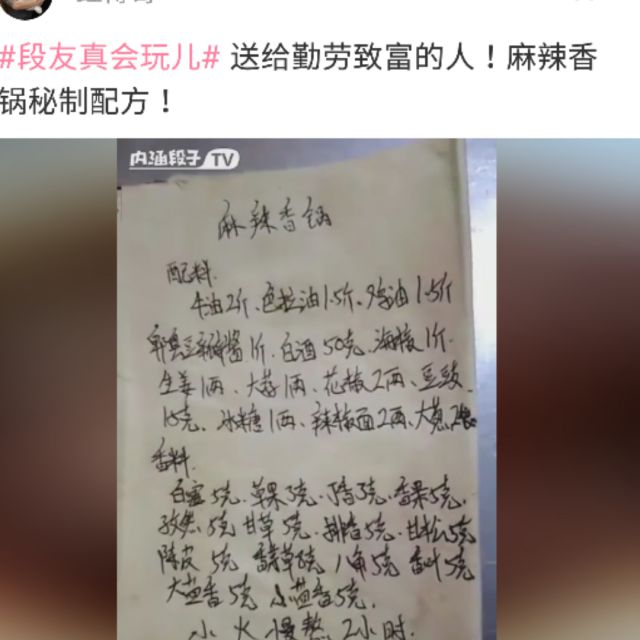 #段友真会玩儿# 送给勤劳致富的人！麻辣香
锅秘制配方！
内涵段子TV
麻辣香锅
配料
牛油2斤、色拉油1.5斤、鸡油1.5斤
郫县豆瓣酱1斤、白酒50克、海椒1斤、
生姜1两、大蒜1两、花椒2两、豆豉、
15克、冰糖1两、辣椒面2两、大葱
香料
白蔻5克、草果5克、5克、香果5克、
5克、甘草5克、排香5克、甘松5克
陈皮5克、香草5克、八角5克、香叶5克
大茴香5克、小茴香5克、
小火慢熬2小时.